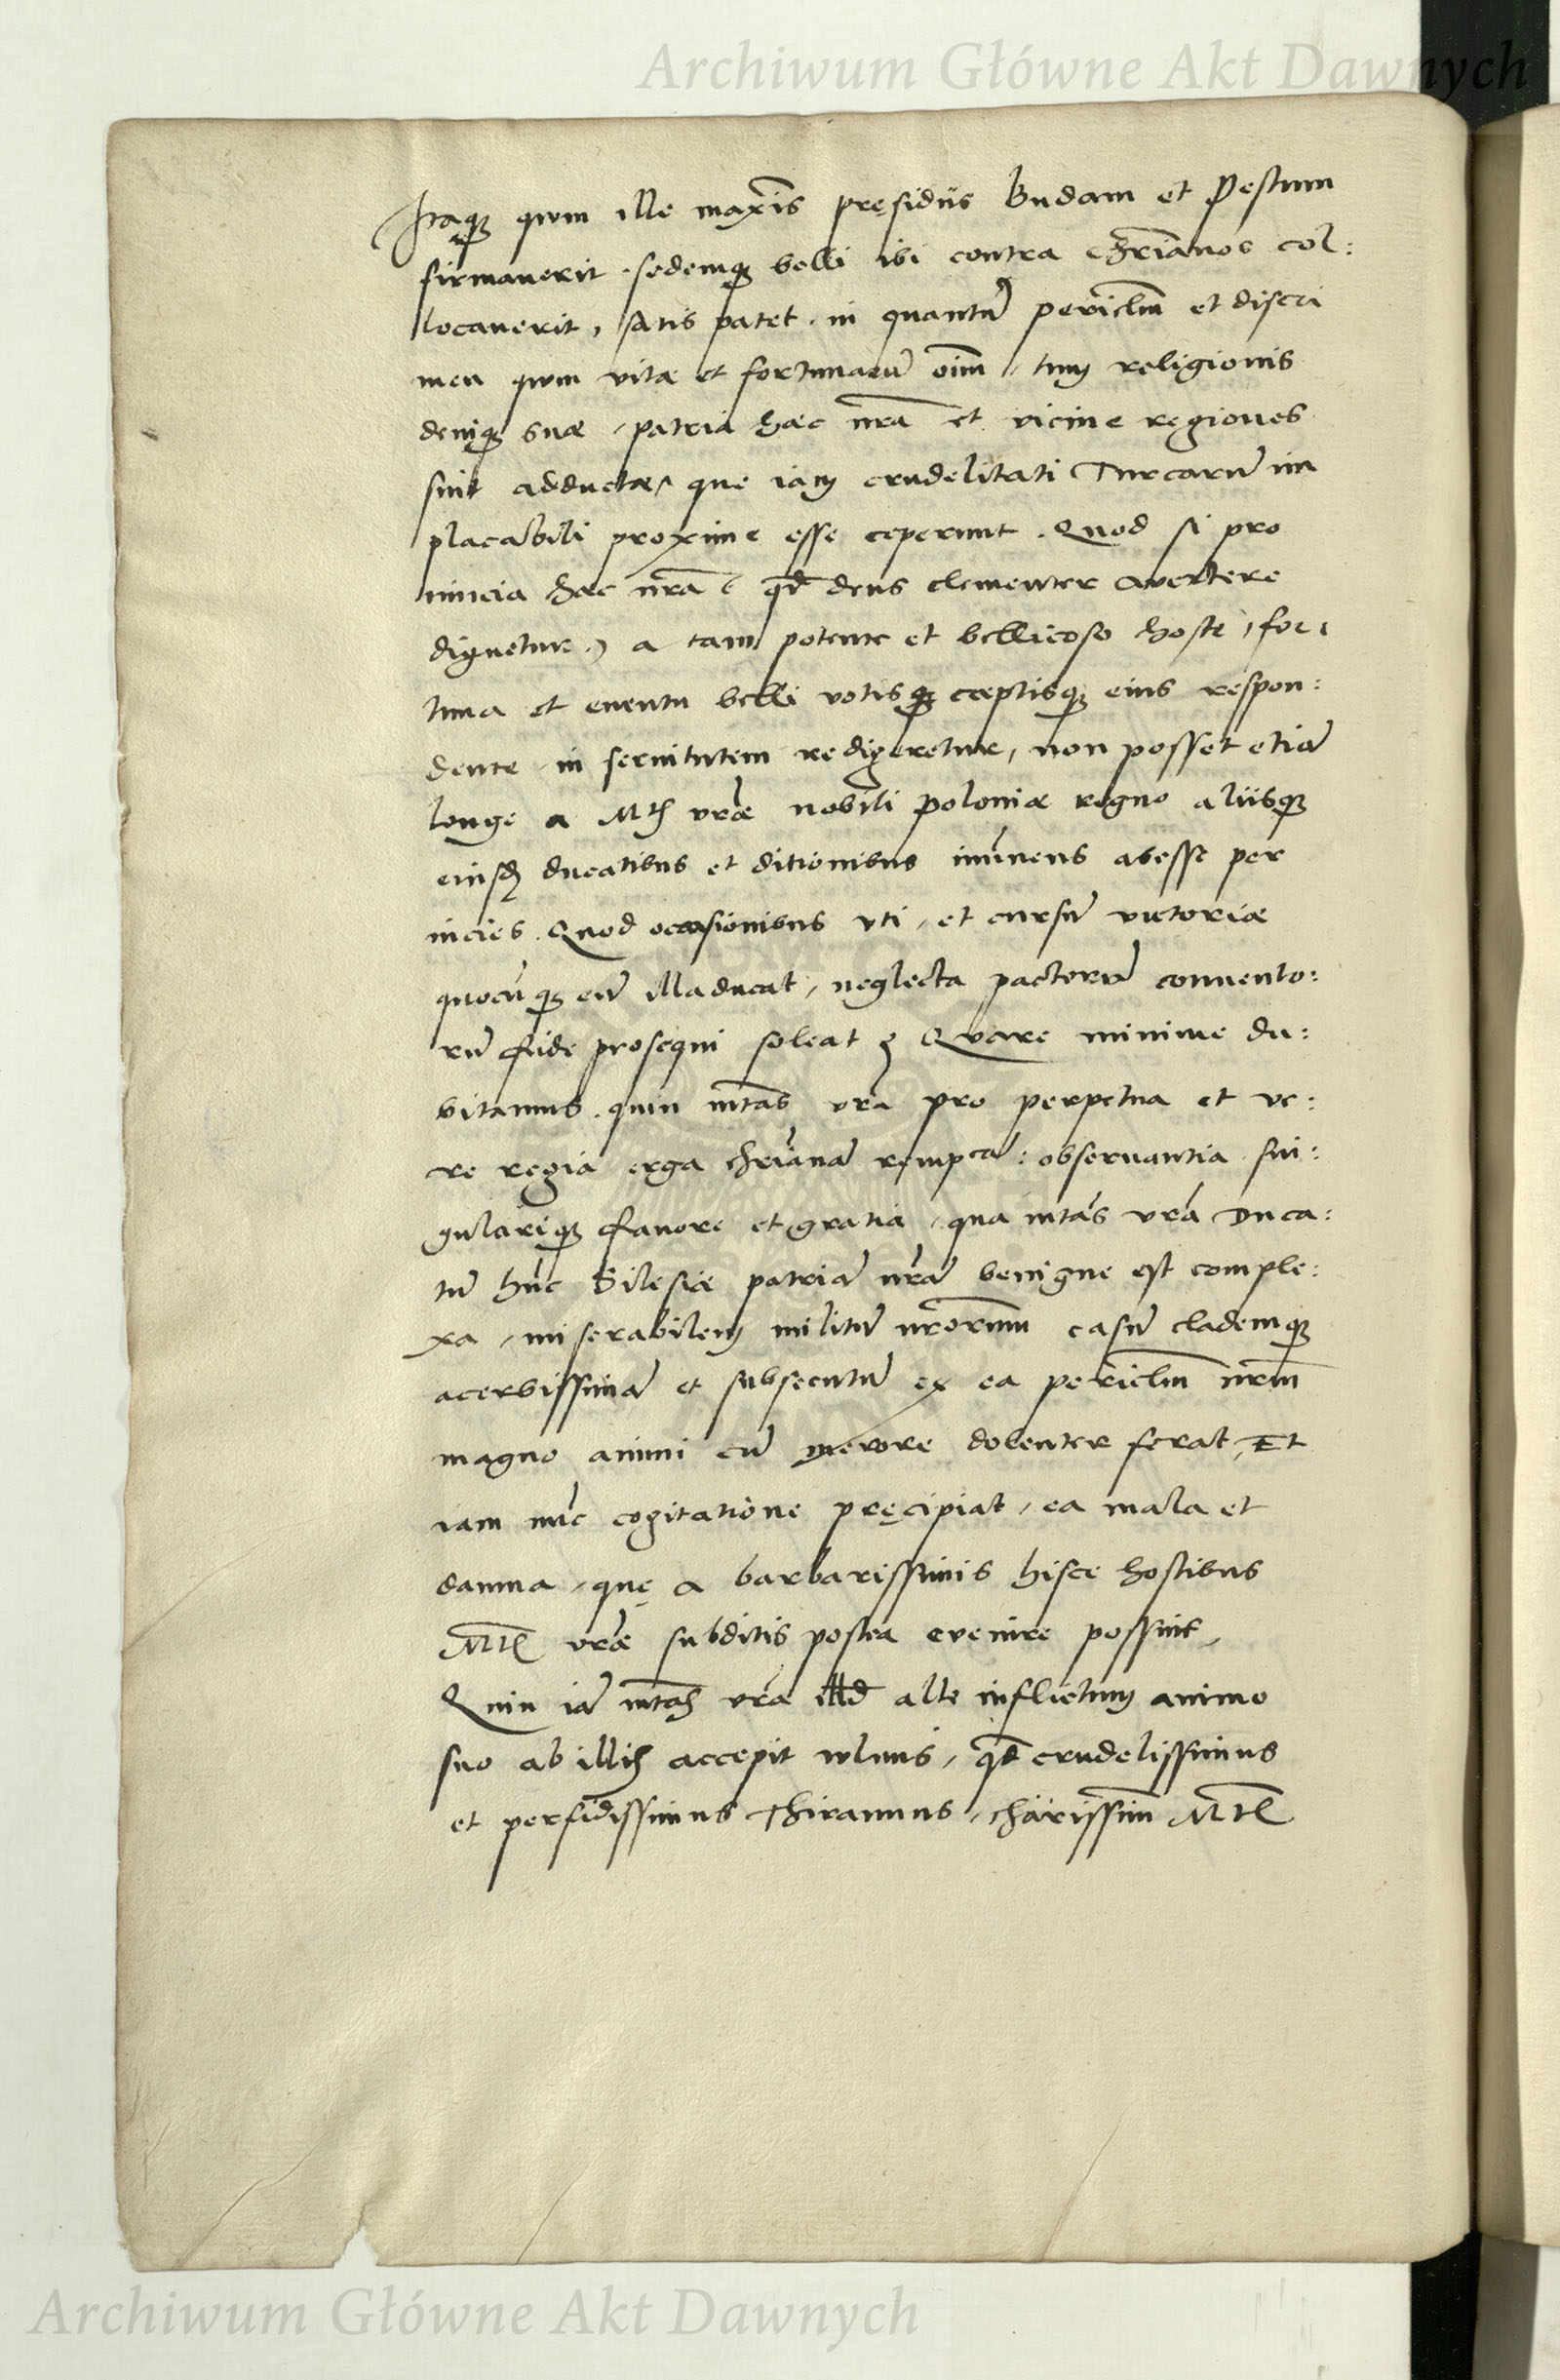 Archiwum Główne Akt Dawnych
Itaq; qum ille maxīs pręsidiis Budam et Pestum
firmauerit . sedemq; belli ibi contra Chrīanos col:
locauerit, satis patet, in quantū pericl̄m et discri
men qum vitæ et fortunarū oīm, tum religionis
deniq; suæ, patria hæc nr̄a et vicine regiones
sint adductæ, que iam crudelitati Turcarū im
placabili proxime esse ceperunt. Quod si pro
uincia hæc nr̄a ( qd̄ deus clementer avertere
dignetur.) a tam potente et bellicoso hoste, for:
tuna et euentu belli votisq; cœptisq; eius respon:
dente, in seruitutem redigeretur, non posset etiā
longe a Mtį vræ nobili Poloniæ regno aliisq;
eiusd ducatibus et ditionibus im̄inens abesse per
nicies. Quod occasionibus vti, et cursū victoriæ
quocūq; eū illa ducat, neglecta pactorū conuento:
rū fide prosequi soleat. Quare minime du:
bitamus. quin mtās vrā pro perpetua et ve:
re regia erga chriānā rempcā: obseruantia sin:
gulariq; fauore et gratia, qua mtās vrā Duca:
tū hūc Silesiæ patriā nrā benigne est comple:
xa, miserabilem militū nrōrum casū clademq;
acerbissimā et subsecutū ex ea pericl̄m nrm̄
magno animi cū merore dolenter ferat, Et
iam nūc cogitatione pręcipiat, ea mala et
damna, quę a barbarissimis hisce hostibus
Mtį vræ subditis postea evenire possint,
Quin iā mtās vrā illd alte inflictum animo
suo ab illis accepit vulnus, qd̄ crudelissimus
et perfidissimus Thirannus, charissim̄ Mtį
Archiwum Główne Akt Dawnych